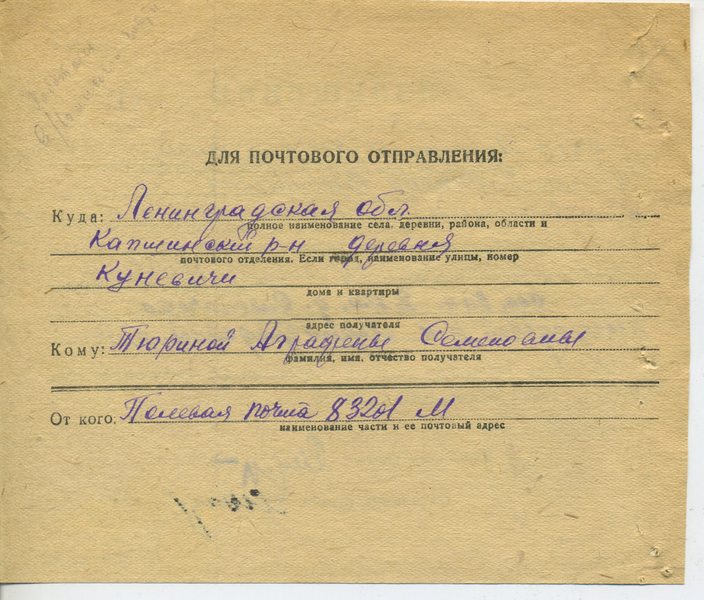 ДЛЯ ПОЧТОВОГО ОТПРАВЛЕНИЯ:
Куда: Ленинградская обл.
полное наименование села, деревни, района, области и
Капшинский р-н деревня
почтового отделения. Если город, наименование улицы, номер
Куневичи
дома и квартиры
адрес получателя
Кому: Тюриной Аграфены Семеновны
фамилия, имя, отчество получателя
От кого: Полевая почта 83201 М
наименование части и ее почтовый адрес